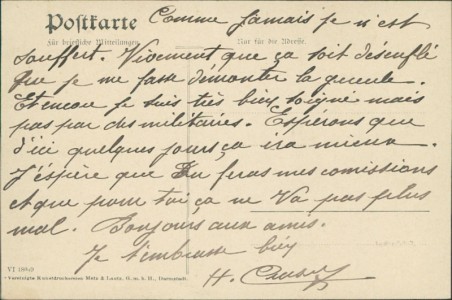 Postkarte
Comme jamais je n'est
Für briefliche Mitteilungen. Nur für die Adresse.
souffert. Vivement que ça soit désenflé
que je me fasse démonter la gueule.
Et encore je suis très bien soigné mais
pas par des militaires. Esperons que
d'ici quelques jours ça ira mieux.
J'éspère que Tu feras mes comissions
et que pour toi ça ne Va pas plus
mal. Bonjours aux amis.
Je t'embrasse bien
H.
VI
Vereinigte Kunstdruckereien Metz & Lautz, G. m. b. H., Darmstadt.